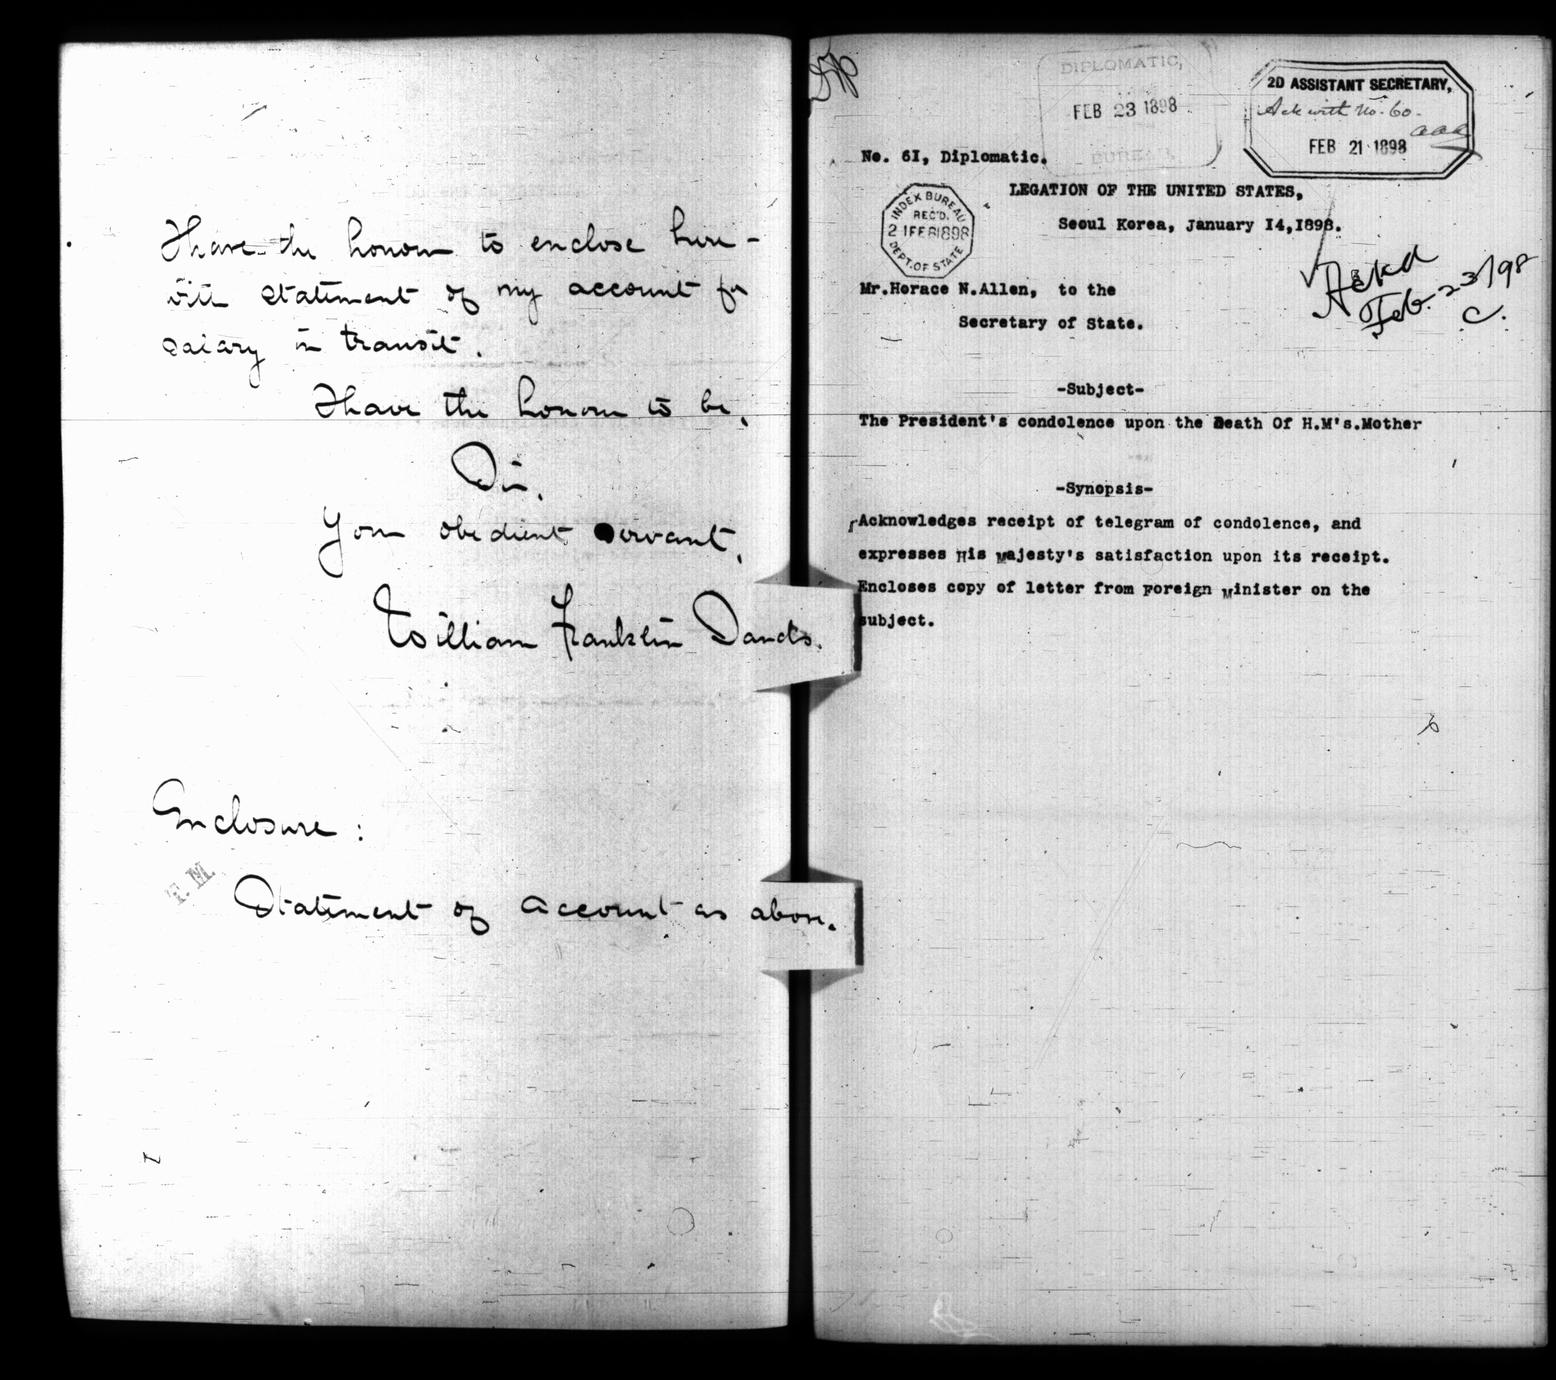 I have the honour to enclose here-
with statement of my account for
salary in transit.
I have the honour to be,
Sir,
Your obedient servant,
William Franklin Sands.
Enclosure :
F. M.
Statement of account as above.
DIPLOMATIC,
FEB 23 1898
BUREAU
2D ASSISTANT SECRETARY,
Ack with No. 60.
aaa
FEB 21 1898
No. 6I, Diplomatic.
LEGATION OF THE UNITED STATES,
Seoul Korea, January I4,I898.
INDEX BUREAU
REC'D.
21FEB1898
DEPT. OF STATE
Ackd
Feb. 23/98
C.
Mr.Horace N.Allen, to the
Secretary of State.
-Subject-
The President's condolence upon the Death Of H.M's.Mother
-Synopsis-
Acknowledges receipt of telegram of condolence, and
expresses His Majesty's satisfaction upon its receipt.
Encloses copy of letter from Foreign Minister on the
subject.